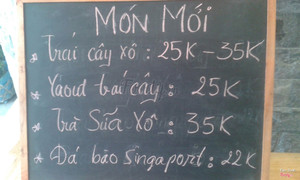 MÓN MỚI
* Trái cây xô : 25K - 35K
* Yaout trái cây : 25K
* Trà Sữa Xô : 35K
* Đá bào Singaport : 22K